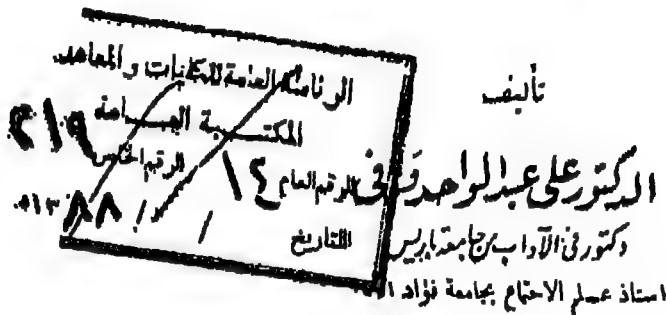 تأليف
الدكتور على عبد الواحد وافى
دكتور فى الآداب من جامعة باريس
استاذ عسلم الاجتماع بجامعة فؤاد
الرئاسة العامة للكليات والمعاهد
المكتبة العامة
الرقم الخاص
الرقم العام ١٤
التاريخ / /